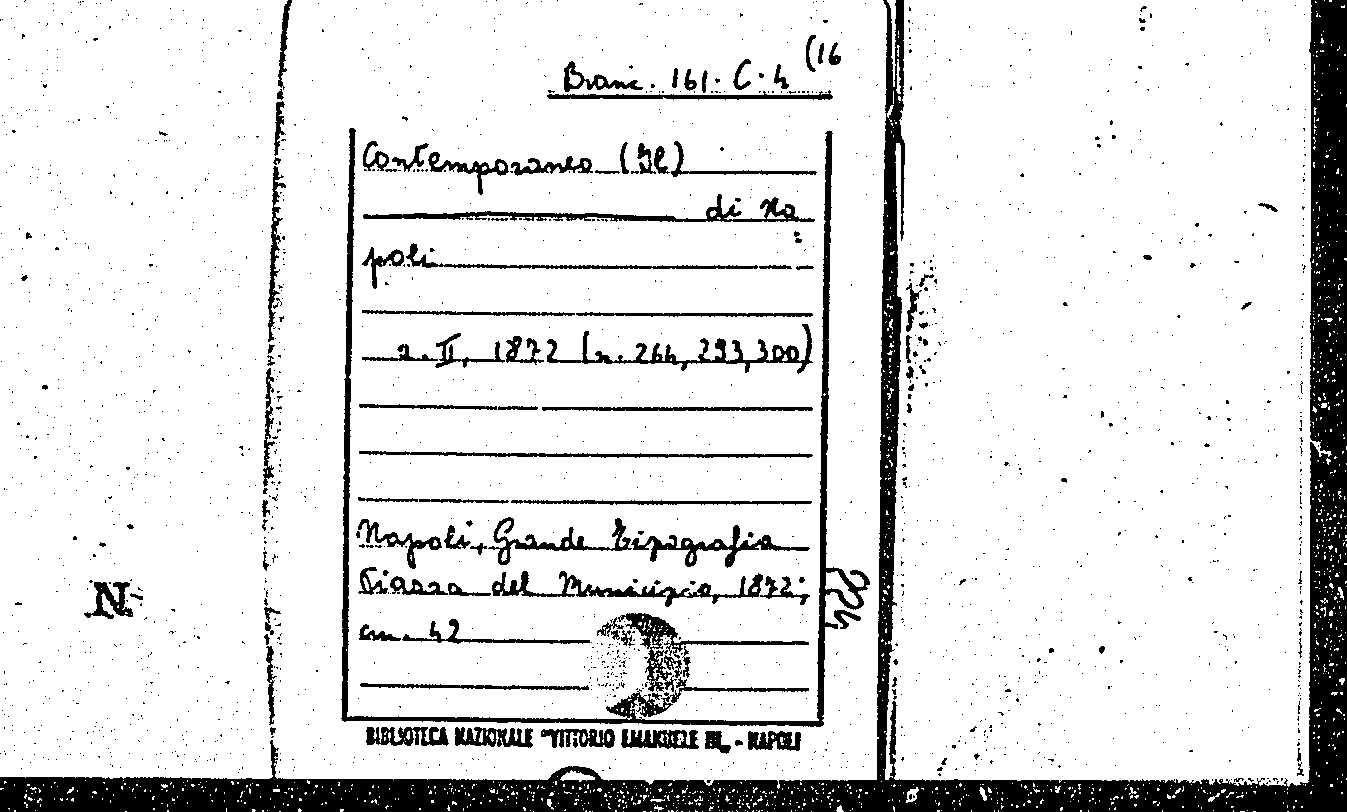 Branc. 161. C. 4 (16
Contemporaneo (Il)
di Na
poli
a. II, 1872 (n. 264, 293, 300)
Napoli, Grande Tipografia
Piazza del Municipio, 1872;
cm. 42
N
BIBLIOTECA NAZIONALE "VITTORIO EMANUELE III„ - NAPOLI